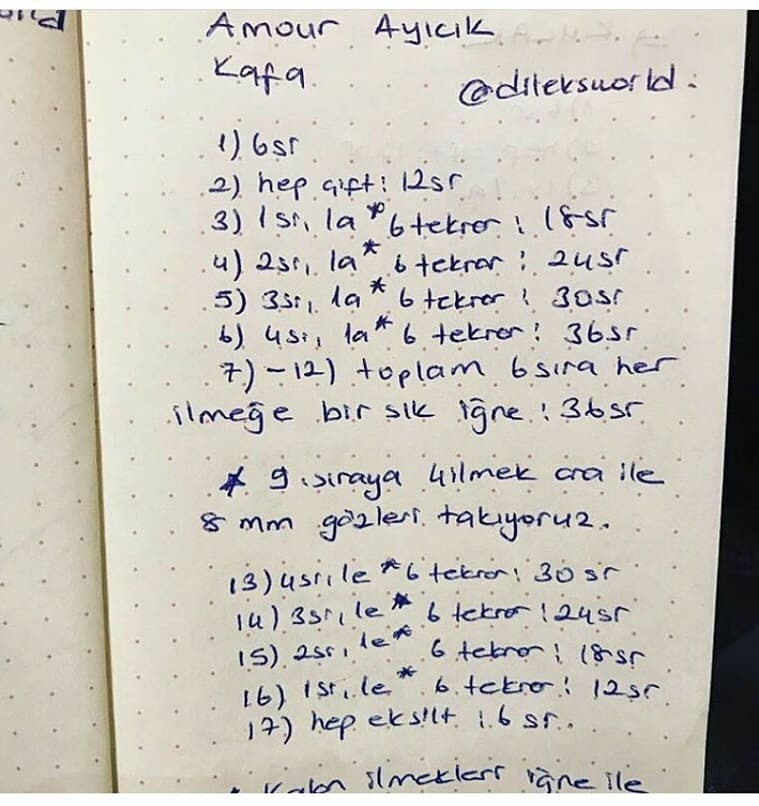 Amour Ayıcık
Kafa
@dileksworld.
1) 6sr
2) hep çift: 12sr
3) 1sr, 1a * 6 tekrar : 18sr
4) 2sr, 1a * 6 tekrar : 24sr
5) 3sr, 1a * 6 tekrar : 30sr
6) 4sr, 1a * 6 tekrar : 36sr
7) - 12) toplam 6 sıra her
ilmeğe bir sık iğne : 36sr
* 9. sıraya 4 ilmek ara ile
8 mm gözleri takıyoruz.
13) 4sr, 1e * 6 tekrar : 30 sr
14) 3sr, 1e * 6 tekrar : 24sr
15) 2sr, 1e * 6 tekrar : 18sr
16) 1sr, 1e * 6 tekrar : 12sr
17) hep eksilt : 6 sr.
* Kalan ilmekleri iğne ile